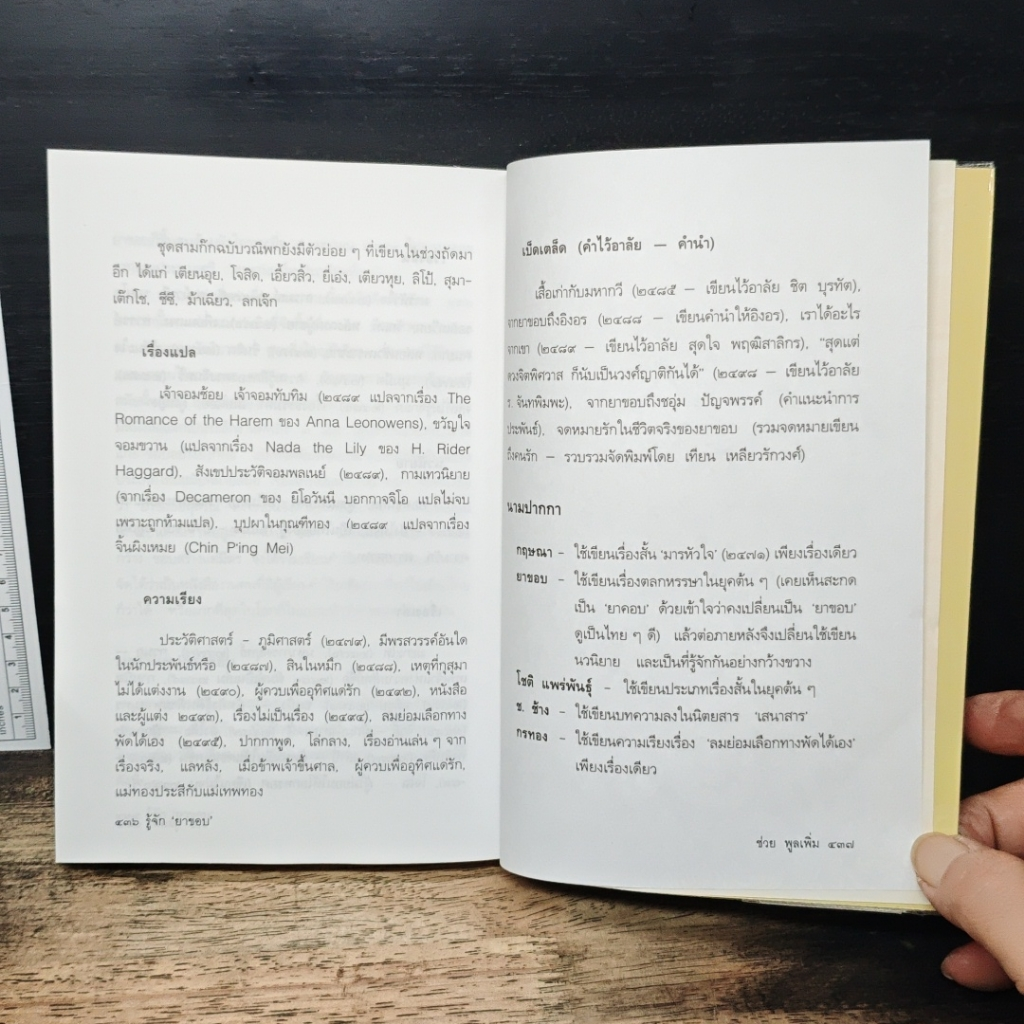 ชุดสามก๊กฉบับวณิพกยังมีตัวย่อย ๆ ที่เขียนในช่วงถัดมา
อีก ได้แก่ เตียนอุย, โจสิด, เอี้ยวสิ้ว, ยี่เอ๋ง, เตียวหุย, ลิโป้, สุมา-
เต๊กโช, ชีซี, ม้าเฉียว, ลกเจ๊ก
เรื่องแปล
เจ้าจอมซ้อย เจ้าจอมทับทิม (๒๔๘๙ แปลจากเรื่อง The
Romance of the Harem ของ Anna Leonowens), ขวัญใจ
จอมขวาน (แปลจากเรื่อง Nada the Lily ของ H. Rider
Haggard), สังเขปประวัติจอมพลเนย์ (๒๔๘๙), กามเทวนิยาย
(จากเรื่อง Decameron ของ ยิโอวันนี บอกกาจจิโอ แปลไม่จบ
เพราะถูกห้ามแปล), บุปผาในกุณฑีทอง (๒๔๘๙ แปลจากเรื่อง
จิ้นผิงเหมย (Chin P'ing Mei)
ความเรียง
ประวัติศาสตร์ - ภูมิศาสตร์ (๒๔๗๙), มีพรสวรรค์อันใด
ในนักประพันธ์หรือ (๒๔๘๗), สินในหมึก (๒๔๘๘), เหตุที่กุสุมา
ไม่ได้แต่งงาน (๒๔๙๐), ผู้ควบเพื่ออุทิศแด่รัก (๒๔๙๒), หนังสือ
และผู้แต่ง ๒๔๙๓), เรื่องไม่เป็นเรื่อง (๒๔๙๔), ลมย่อมเลือกทาง
พัดได้เอง (๒๔๙๕), ปากกาพูด, โล่กลาง, เรื่องอ่านเล่น ๆ จาก
เรื่องจริง, แลหลัง, เมื่อข้าพเจ้าขึ้นศาล, ผู้ควบเพื่ออุทิศแด่รัก,
แม่ทองประสีกับแม่เทพทอง
๔๓๖ รู้จัก 'ยาขอบ'
เบ็ดเตล็ด (คำไว้อาลัย — คำนำ)
เสื้อเก่ากับมหากวี (๒๔๘๕ — เขียนไว้อาลัย ชิต บุรทัต),
จากยาขอบถึงอิงอร (๒๔๘๘ — เขียนคำนำให้อิงอร), เราได้อะไร
จากเขา (๒๔๘๙ — เขียนไว้อาลัย สุดใจ พฤฒิสาลิกร), "สุดแต่
ดวงจิตพิศวาส ก็นับเป็นวงศ์ญาติกันได้" (๒๔๙๘ — เขียนไว้อาลัย
ร. จันทพิมพะ), จากยาขอบถึงชอุ่ม ปัญจพรรค์ (คำแนะนำการ
ประพันธ์), จดหมายรักในชีวิตจริงของยาขอบ (รวมจดหมายเขียน
ถึงคนรัก — รวบรวมจัดพิมพ์โดย เทียน เหลียวรักวงศ์)
นามปากกา
กฤษณา – ใช้เขียนเรื่องสั้น 'มารหัวใจ' (๒๔๗๑) เพียงเรื่องเดียว
ยาขอบ – ใช้เขียนเรื่องตลกหรรษาในยุคต้น ๆ (เคยเห็นสะกด
เป็น 'ยาคอบ' ด้วยเข้าใจว่าคงเปลี่ยนเป็น 'ยาขอบ'
ดูเป็นไทย ๆ ดี) แล้วต่อภายหลังจึงเปลี่ยนใช้เขียน
นวนิยาย และเป็นที่รู้จักกันอย่างกว้างขวาง
โชติ แพร่พันธุ์ – ใช้เขียนประเภทเรื่องสั้นในยุคต้น ๆ
ช. ช้าง – ใช้เขียนบทความลงในนิตยสาร 'เสนาสาร'
กรทอง – ใช้เขียนความเรียงเรื่อง 'ลมย่อมเลือกทางพัดได้เอง'
เพียงเรื่องเดียว
ช่วย พูลเพิ่ม ๔๓๗
inches 1 2 3 4 5 6